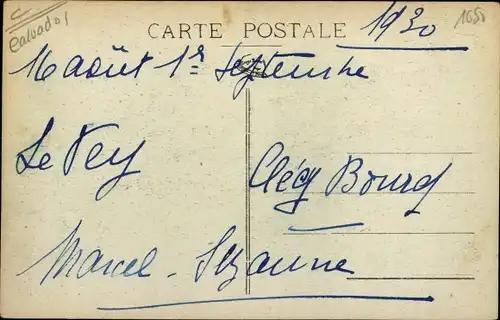 Calvados
CARTE POSTALE
1930
16 août 1er Septembre
Le Vey
Clécy Bourg
Marcel - Suzanne